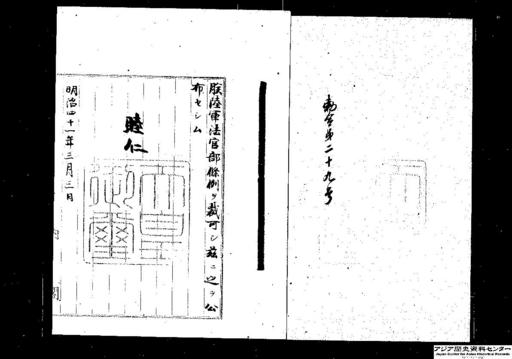 勅令第二十九号
朕陸軍法官部條例ヲ裁可シ茲ニ之ヲ公
布セシム
睦仁
明治四十一年三月三日
アジア歴史資料センター
Japan Center for Asian Historical Records